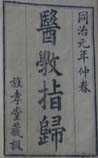 同治元年仲春
醫歝指歸
孝堂藏板